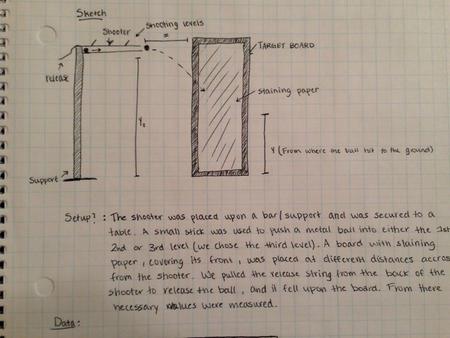 Sketch
Shooter
Shooting levels
x
release
TARGET BOARD
staining paper
Y₀
Y (From where the ball hit to the ground)
Support
Setup? : The shooter was placed upon a bar/support and was secured to a
table. A small stick was used to push a metal ball into either the 1st
2nd or 3rd level (we chose the third level). A board with staining
paper, covering its front, was placed at different distances accros
from the shooter. We pulled the release string from the back of the
shooter to release the ball, and it fell upon the board. From there
necessary values were measured.
Data: